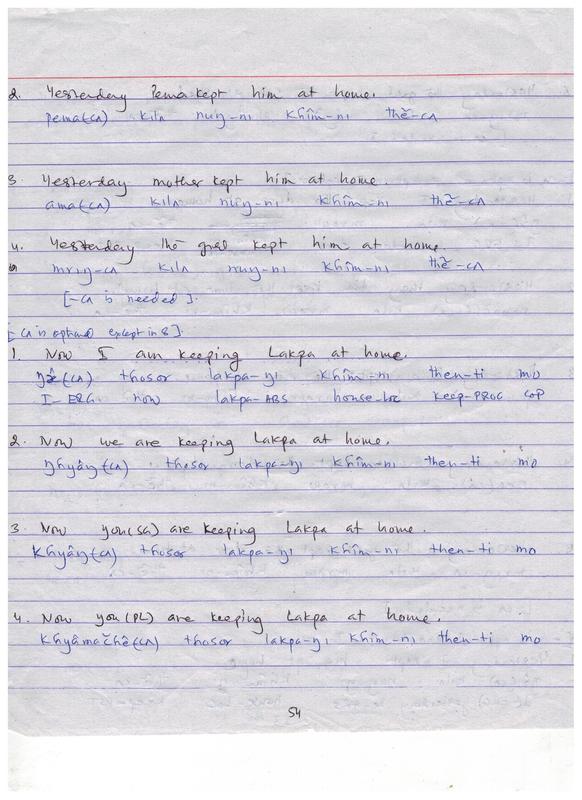 2. Yesterday Pema kept him at home.
pema(cʌ) kilʌ nuŋ-nı khîm-nı thě-cʌ
3. Yesterday mother kept him at home.
ama(cʌ) kılʌ nuŋ-nı khîm-nı thě-cʌ
4. Yesterday the girl kept him at home.
mrıŋ-cʌ kılʌ nuŋ-nı khîm-nı thě-cʌ
[-cʌ is needed].
[cʌ is optional except in 8].
1. Now I am keeping Lakpa at home.
(cʌ) thosor lakpa-ŋı khîm-nı then-ti mo
I-ERG now lakpa-ABS house-LOC keep-PROG COP
2. Now we are keeping Lakpa at home.
ŋhyâŋ(cʌ) thosor lakpa-ŋı khîm-nı then-ti mo
3. Now you(SG) are keeping Lakpa at home.
Khyâŋ(cʌ) thosor lakpa-ŋı khîm-nı then-ti mo
4. Now you(PL) are keeping Lakpa at home.
Khyâmačhê(cʌ) thosor lakpa-ŋı khîm-nı then-ti mo
54